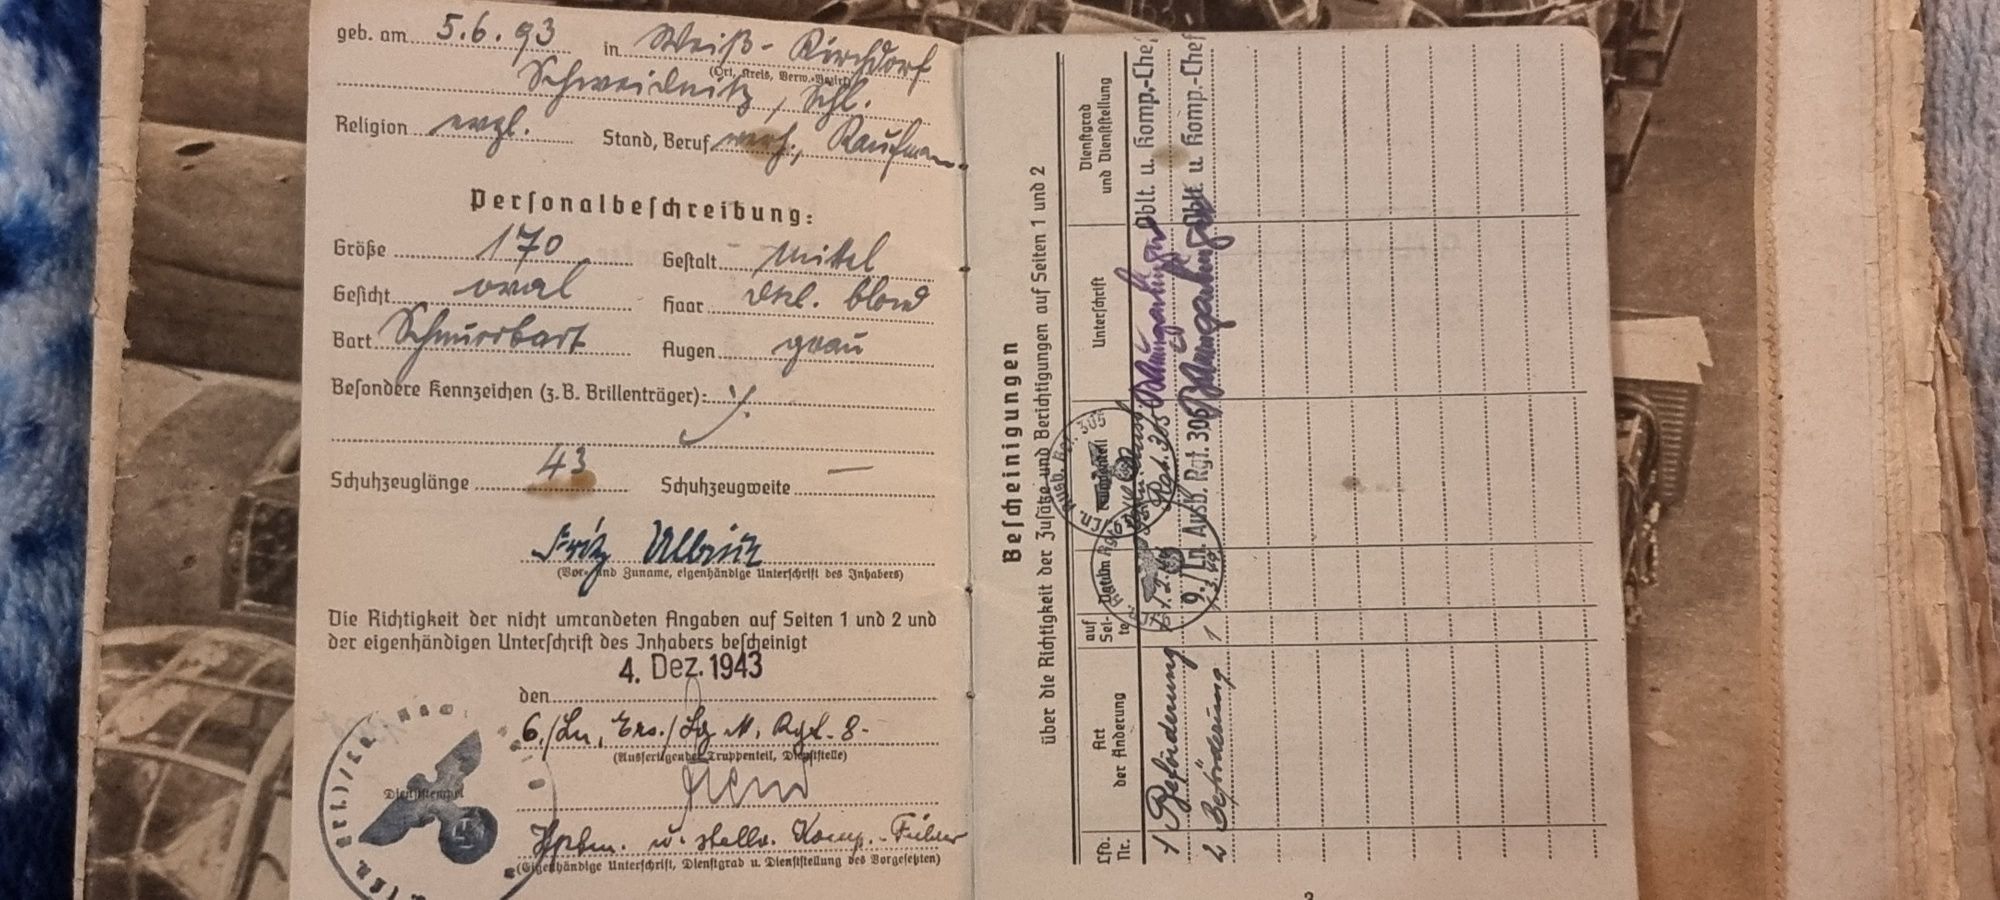 geb. am 5.6.93 in Weiß-Kirchdorf
(Ort, Kreis, Verw.-Bezirk)
Schweidnitz, Schl.
Religion evgl. Stand, Beruf verh., Kaufmann
Personalbeschreibung:
Größe 170 Gestalt mittel
Gesicht oval Haar dkl. blond
Bart Schnurrbart Augen grau
Besondere Kennzeichen (z. B. Brillenträger): ./.
Schuhzeuglänge 43 Schuhzeugweite —
Fritz Ullrich
(Vor- und Zuname, eigenhändige Unterschrift des Inhabers)
Die Richtigkeit der nicht umrandeten Angaben auf Seiten 1 und 2 und
der eigenhändigen Unterschrift des Inhabers bescheinigt
den 4. Dez. 1943
6./Ln. Ers./ Rgt. 8-
(Ausfertigender Truppenteil, Dienststelle)
Dienststempel
Hptm. u. stellv. Komp.-Führer
(Eigenhändige Unterschrift, Dienstgrad u. Dienststellung des Vorgesetzten)
Bescheinigungen
über die Richtigkeit der Zusätze und Berichtigungen auf Seiten 1 und 2
Lfd. Nr.
Art der Änderung
auf Seite
Datum
Truppenteil
Unterschrift
Dienstgrad und Dienststellung
1 Beförderung Rgt. 305 Oblt. u. Komp.-Chef
2 Beförderung 1 9./Ln. Ausb. Rgt. 305 Oblt. u. Komp.-Chef